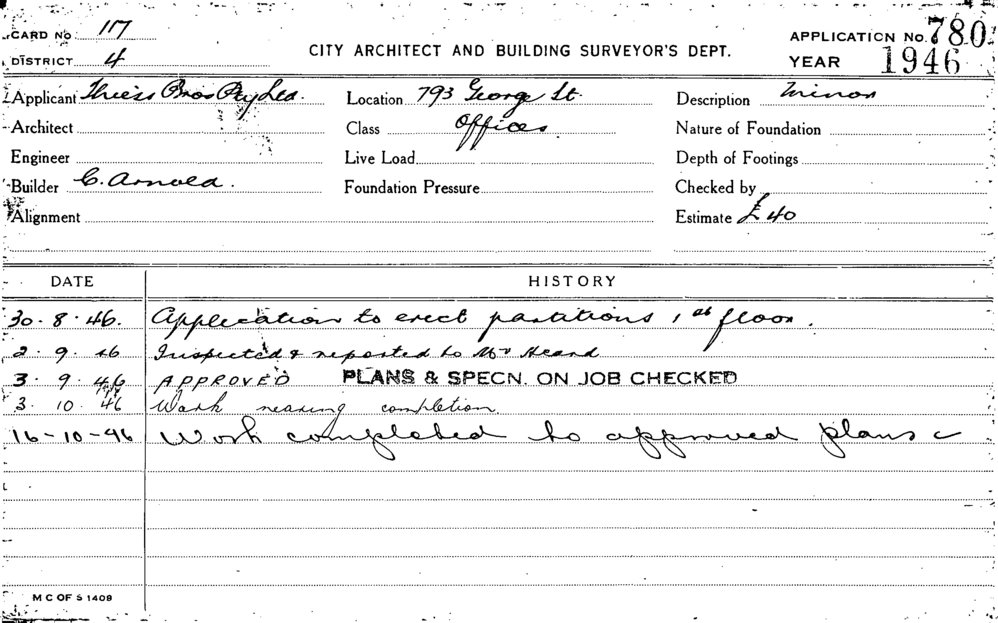 CARD No 117
DISTRICT 4
CITY ARCHITECT AND BUILDING SURVEYOR'S DEPT.
APPLICATION No. 780
YEAR 1946
Applicant Thiess Bros Pty Ltd. Location 793 George St. Description Minor
Architect Class Offices Nature of Foundation
Engineer Live Load Depth of Footings
Builder C. Arnold. Foundation Pressure Checked by
Alignment Estimate £40
DATE HISTORY
30.8.46. Application to erect partitions 1st floor.
2.9.46 Inspected & reported to Mr Heard
3.9.46 APPROVED PLANS & SPECN. ON JOB CHECKED
3.10.46 Work nearing completion
16-10-46 Work completed to approved plans
M C OF S 1409